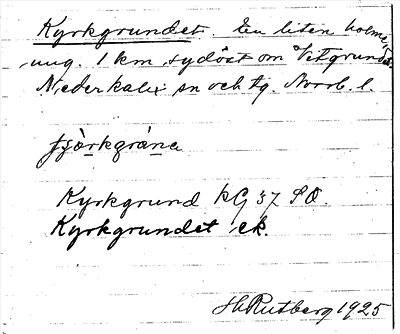 Kyrkgrundet. En liten holme
ung. 1 km sydöst om Vitgrundet
Nederkalix sn och tg. Norrb. l.
Kyrkgrund kG 37 SO.
Kyrkgrundet ek.
H Rutberg 1925